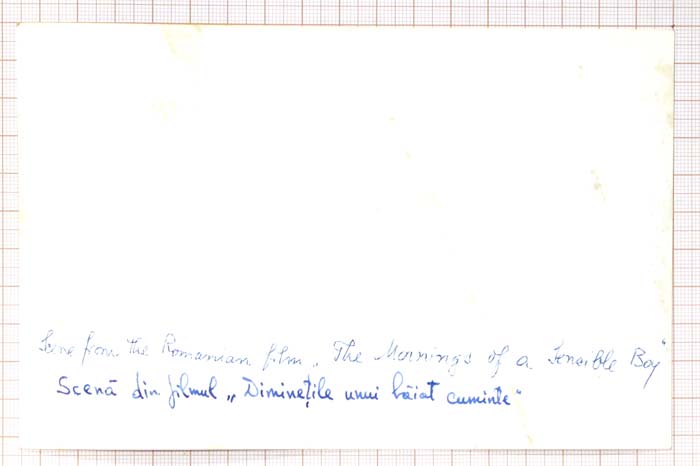 Scene from the Romanian film „The Mornings of a Sensible Boy"
Scenă din filmul „Diminețile unui băiat cuminte"